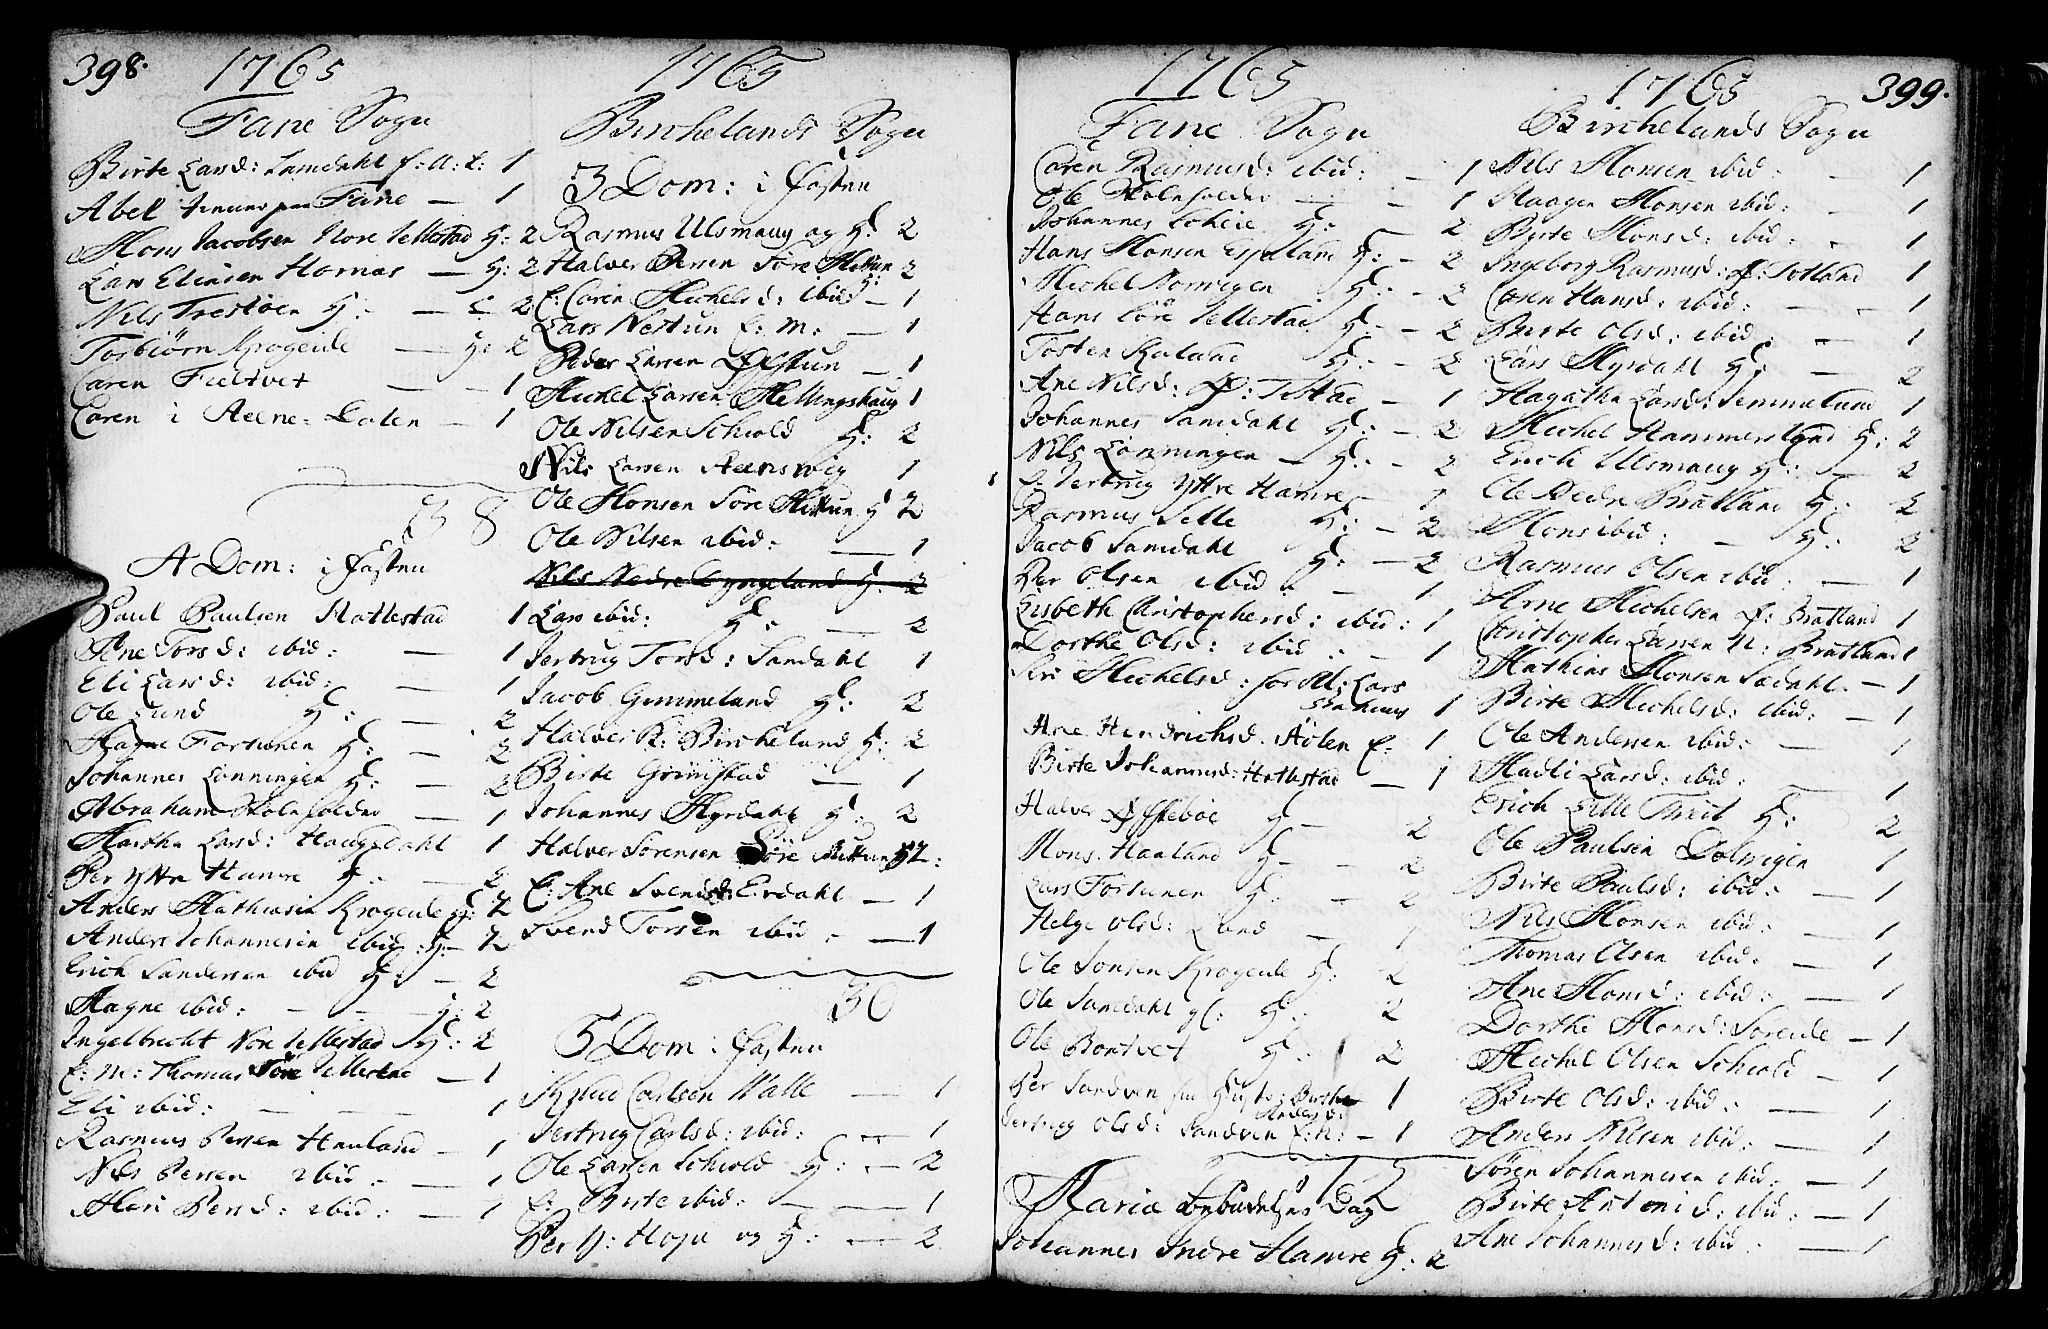 398.
1765
Fane Sogn
Birte Larsd: Samdahl f: a: k: 1
Abel paa Fane — 1
Mons Jacobsen Nore Tellestad H: 2
Lars Eliasen Hornas — H: 2
Nils Trestøen H: — 2
Torbiørn Krogeide — H: 2
Caren Fieltvet — 1
Caren i — 1
38
4 Dom: i Fasten
Paul Paulsen Hattestad 1
Ane Torsd: ibid: — 1
Eli Larsd: ibid: — 1
Ole Lund H: — 2
Magne Fortunen H: — 2
Johannes Lønningen H: — 2
Abraham Skoleholder — 1
Martha Larsd: Haugsdahl 1
Per Ytre Hamre H: — 2
Anders Mathiasen Krogeide H: 2
Anders Johannesen ibid: H: — 2
Erich Sandersen ibid H: — 2
Magne ibid: — H: 2
Ingelbrecht Nore Tellestad H: 2
E: M: Thomas Søre Tellestad — 1
Eli ibid: — 1
Rasmus Persen Hauland — 1
Nils Persen ibid: — 1
Mari Persd: ibid: — 1
1765
Birchelands Sogn
3 Dom: i Fasten
Rasmus Ulsmaug og H: 2
Halvor Persen Søre Midtun H: 2
E: Caren Michelsd: ibid: — 1
Lars Nestun E: M: — 1
Peder Larsen Øfstun — 1
Michel Larsen Mellingshaug 1
Ole Nilsen Schiold H: 2
Nils Larsen 1
Ole Monsen Søre Midtun H 2
Ole Nilsen ibid: — 1
Nils Nedre Tyngeland H: 2
Lars ibid: H: — 2
Jertrug Torsd: Samdahl 1
Jacob Gimmeland H: 2
Halvor K: Bircheland H: 2
Birte Grimstad — 1
Johannes Myrdahl H: 2
Halver Sørensen Søre Midtun H 2:
E: Ane Svendsd: Erdahl — 1
Svend Torsen ibid: — 1
30
5 Dom: i Fasten
Knud Carlsen Walle — 1
Jertrug Carlsd: ibid: — 1
Ole Larsen Schiold H: — 2
E: Birte ibid: — 1
Per Hope og H: — 2
1765
Fane Sogn
Caren Rasmusd: ibid: — 1
Ole Skoleholder — 1
Johannes H: — 2
Hans Monsen Espeland H: — 2
Michel Norwigen H: — 2
Hans Søre Tellestad H: — 2
Tosten Raland H: — 2
Ane Nilsd: Ø: Titlestad — 1
Johannes Samdahl H: — 2
Nils Lønningen — H: — 2
E: Jertrug Ytre Hamre — 1
Rasmus Selle H: — 2
Jacob Samdahl H: — 2
Per Olsen ibid: — 1
Lisbeth Christophersd: ibid: 1
Dorthe Olsd: ibid: — 1
Siri Michelsd: for Lars 1
Ane Hendrichsd. E: 1
Birte Johannesd: Hattestad — 1
Halver H — 2
Mons Hauland H — 2
Lars Fortunen H: — 2
Helge Olsd: Lund — 1
Ole Jonsen Krogeide H: 2
Ole Samdahl H: 2
Ole Bontvet H: 2
Per Sandven Birthe Andersd: 1
Jertrug Olsd: Sandven E: — 1
52
Mariæ Bebudelses Dag
Johannes Indre Hamre H: 2
399.
1765
Birchelands Sogn
Nils Monsen ibid: — 1
Haagen Monsen ibid: — 1
Birte Monsd: ibid: — 1
Ingeborg Rasmusd: Ø: Totland 1
Caren Hansd: ibid: — 1
Birte Olsd: ibid: — 1
Lars Myrdahl H: — 2
Magatha Larsd: Semmelund 1
Michel Hammersland H: 2
Erich Ulsmaug H: — 2
Ole Nedre Bratland H: 2
Mons ibid: — H: 2
Rasmus Olsen ibid: — 1
Arne Michelsen Ø: Bratland 1
Christopher Larsen N: Bratland 1
Mathias Monsen Sædahl — 1
Birte Michelsd: ibid: — 1
Ole Andersen ibid: — 1
Madli Larsd: ibid: — 1
Erich Lille Tveit H: 2
Ole Paulsen Dolwigen 1
Birte Paulsd: ibid: — 1
Nils Monsen ibid: — 1
Thomas Olsen ibid: — 1
Ane Monsd: ibid: — 1
Dorthe Monsd: Soreide — 1
Michel Olsen Schiold — 1
Birte Olsd: ibid: — 1
Anders Nilsen ibid: — 1
Sören Johannesen ibid: — 1
Birte Antonid: ibid: — 1
Ane Johannesd: ibid: — 1